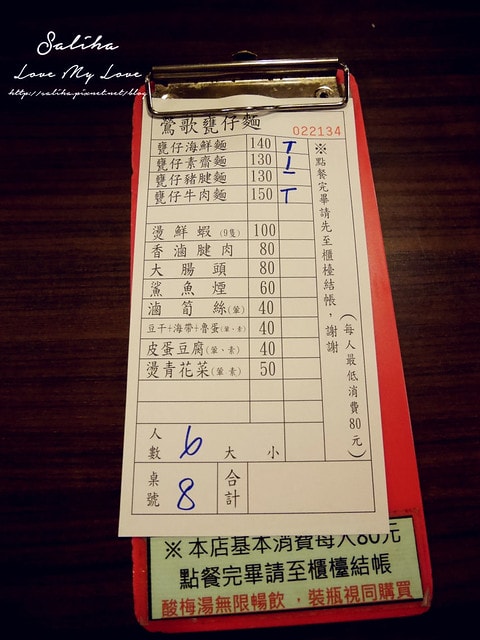 Saliha
Love My Love
http://saliha.pixnet.net/blog
鶯歌甕仔麵
022134
甕仔海鮮麵 140 T
甕仔素齋麵 130 一
甕仔豬腱麵 130 一
甕仔牛肉麵 150 T
燙鮮蝦(9隻) 100
香滷腱肉 80
大腸頭 80
鯊魚煙 60
滷筍絲(葷) 40
豆干+海帶+魯蛋(葷、素) 40
皮蛋豆腐(葷、素) 40
燙青花菜(葷素) 50
※點餐完畢請先至櫃檯結帳，謝謝
(每人最低消費80元)
人數 6 大 小
桌號 8 合計
※本店基本消費每人80元
點餐完畢請至櫃檯結帳
酸梅湯無限暢飲，裝瓶視同購買